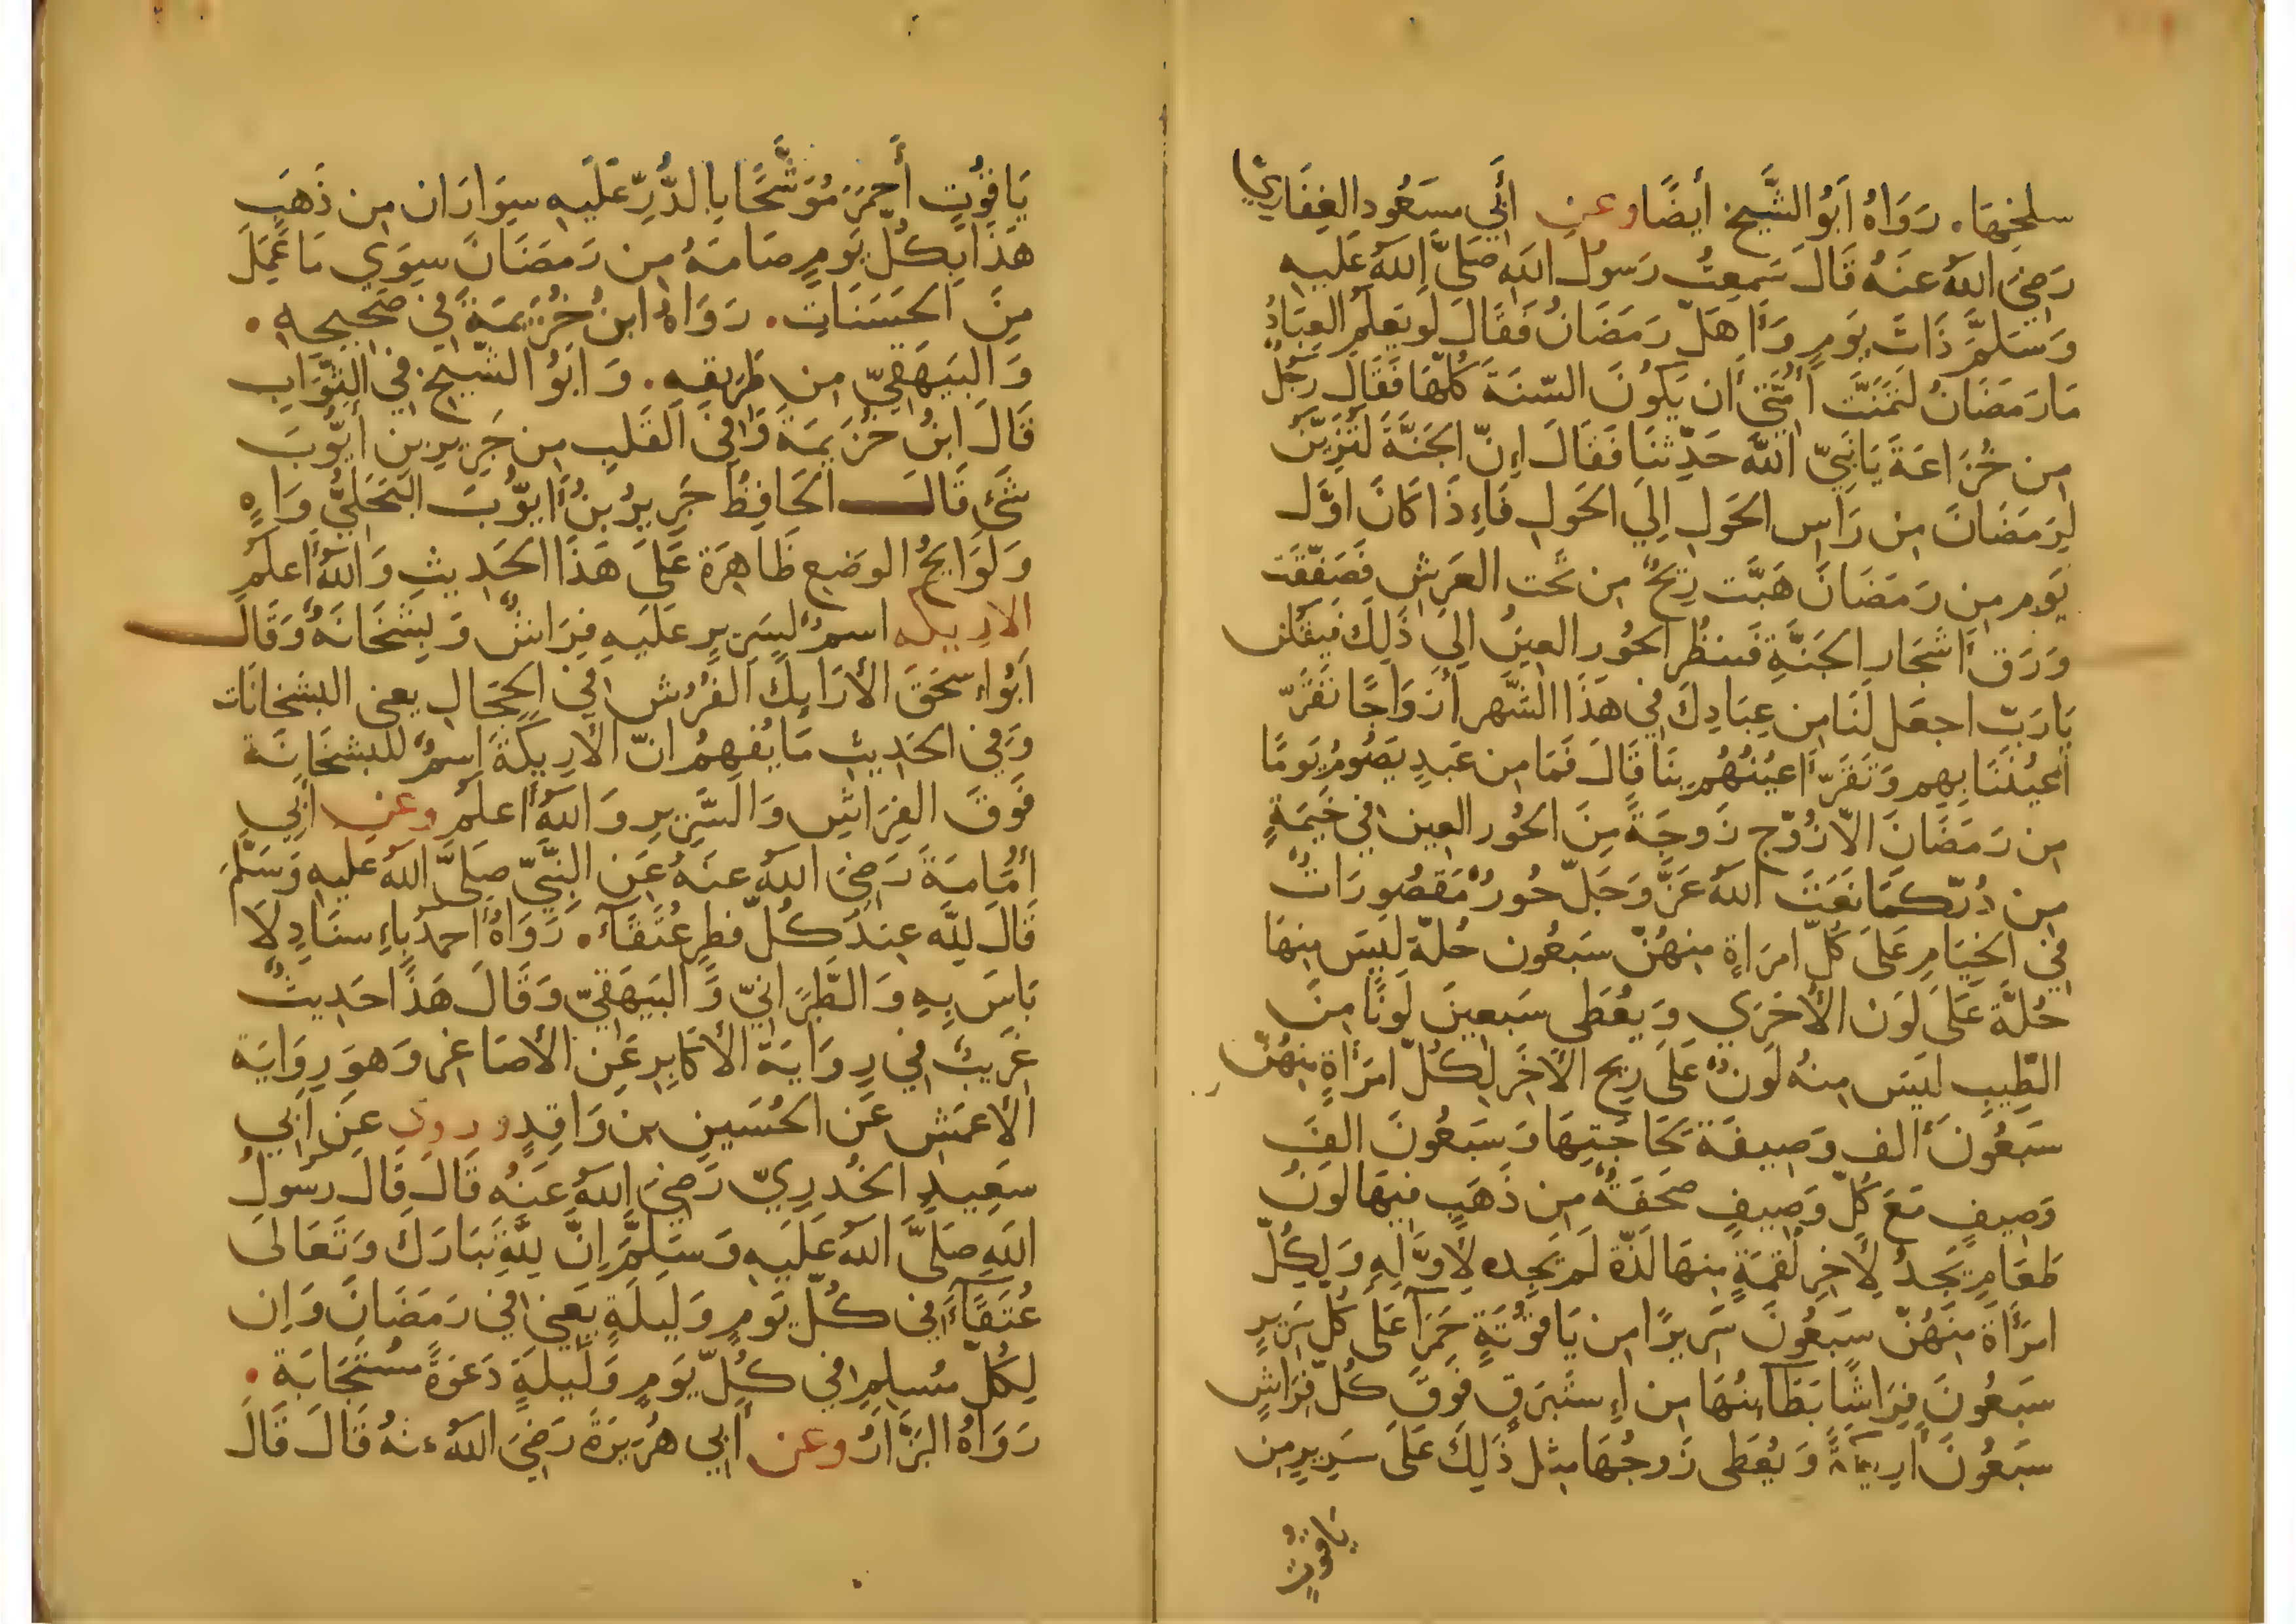 سلخِهَا. رَوَاهُ اَبُو الشَّيخِ أيضًا وعن أَبِي مسَعُود الغِفَارِيّ
رَضِيَ اللهُ عنهُ قَالَ سَمِعتُ رَسولَ اللهِ صَلَّى اللهُ عَلَيهِ
وَسَلَّمَ ذَاتَ يَومٍ وَاَهَلّ رَمَضَانُ فَقَالَ لَو يَعلَمُ العِبَادُ
مَا رَمَضَانُ لَتَمَنَّت اُمَّتِي أَن يَكُونَ السّنَةَ كُلّهَا فَقَالَ رَجُلٌ
مِن خُزَاعَةَ يَا نَبِيّ اللهِ حَدِّثنَا فَقَالَ اِنّ الجَنَّةَ لَتَزَيَّنُ
لِرَمَضَانَ مِن رَاسِ الحَولِ اِلَي الحَولِ فَاِذَا كَانَ اَوَّل
يَومٍ مِن رَمَضَانَ هَبَّت رِيحٌ مِن تَحت العَرشِ فَصَفّقَت
وَرَقَ اَشجَارِ الجَنَّةِ فَتنظُر الحُور العِينُ اِلَي ذَلِكَ فيَقُلن
يَا رَبّ اجعَل لَنَا مِن عِبَادِكَ فِي هَذَا الشَّهرِ أزوَاجًا تَقَرّ
أعيُنَنَا بِهِم وَتَقَرّ أعيُنُهُم بِنَا قَالَ فَمَا مِن عَبدٍ يَصُومُ يَومًا
مِن رَمَضَانَ الاّ زُوِّج زَوجَةً مِنَ الحُور العِين فِي خَيمَةٍ
مِن دُرّ كمَا نَعَتَ اللهُ عَزَّ وَجَلّ حُورٌ مَقصُورَاتٌ
فِي الخِيَامِ عَلَى كُلّ امرَاةٍ مِنهُنّ سَبعُون حُلّة لَيسَ مِنهَا
حُلّة عَلَى لَون الأُخرَي وَيُعطَى سَبعِينَ لَونًا مِنَ
الطِّيبِ لَيسَ مِنهُ لَونٌ عَلَى رِيحِ الآخَر لِكُلّ امرَاةٍ مِنهُنّ
سَبعُونَ أَلف وَصِيفَة لحَاجَتِهَا وَسَبعُونَ الفَ
وَصِيفٍ مَعَ كُلّ وَصِيفٍ صَحفَةٌ مِن ذَهَبٍ فِيهَا لَونُ
طَعَامٍ يَجدُ لِآخِرِ لُقمَةٍ مِنهَا لَذّة لَم يَجِده لِأوَّلِهِ وَلِكُلّ
امرَأَة مِنهُنّ سَبعُونَ سَرِيرًا مِن يَاقوُتَةٍ حَمرَآ عَلَى كُلّ سَرِيرٍ
سَبعُونَ فِرَاشًا بَطَآئِنُهَا مِن اِستَبرَقٍ فَوقَ كُلّ فِرَاشٍ
سَبعُونَ اَرِيكَةً وَيُعطَى زَوجُهَا مِثل ذَلِكَ عَلَى سَرِيرٍ مِن
يَاقوُتٍ
يَاقوُتٍ أَحمَرَ مُوَشَّحًا بِالدُّرِّ عَلَيهِ سِوَارَان مِن ذَهَبٍ
هَذَا بِكُلّ يَومٍ صَامَهُ مِن رَمَضَانَ سِوَي مَا عَمِلَ
مِنَ الحَسَنَاتِ. رَوَاهُ ابنُ خُزَيمَةَ فِي صَحِيحِهِ.
وَالبَيهَقِيّ مِن طَرِيقِهِ. وَاَبُو الشّيخِ فِي الثَّوَابِ
قَالَ ابنُ خُزَيمَةَ وَفِي القَلبِ مِن جَرِيرِ بنِ أيّوُبَ
شَئ قَالَ الحَافِظُ جَرِيرُ بنُ أيّوُبَ البَجَلِيُّ وَاهٍ
وَلَوَايحُ الوَضعِ ظَاهِرَة عَلَى هَذَا الحَدِيثِ وَاللهُ أعلَم
الاريكه اسمٌ لِسَرِيرٍ عَلَيهِ فِرَاشٌ وَبشخَانَةٌ وَقَالَ
اَبُو اِسحَقَ الأَرَايِكَ الفُرُش فِي الحِجَالِ يعني البشخانَات
وَفِي الحَدِيثِ مَا يُفهِمُ انّ الأرِيكَةَ اِسمٌ للبشخَانَة
فَوقَ الفِرَاشِ وَالسَّرِيرِ وَاللهُ أعلَم وعن أَبِي
أُمَامَةَ رَضِيَ اللهُ عنهُ عَنِ النَّبِيّ صَلَّى اللهُ عليهِ وَسَلَّمَ
قَالَ لِلّه عِندَ كُلّ فطرٍ عُتَقَآء. رَوَاهُ أحمَدُ بِاِسنَادٍ لَا
بَاسَ بِهِ وَالطَّبَرَانِيّ وَالبَيهَقِيّ وَقَالَ هَذَا حَدِيثٌ
غَرِيبٌ فِي رِوَايَة الأكَابِرِ عَنِ الأصَاغِر وَهوَ رِوَايَة
الأعمَشِ عَن الحُسَينِ بن وَاقِدٍ وروِي عَن اَبِي
سَعِيدٍ الخُدرِيّ رَضِيَ اللهُ عَنهُ قَالَ قَالَ رَسُولُ
اللهِ صَلَّى اللهُ عَلَيهِ وَسَلَّمَ اِنَّ لِلّهِ تَبَارَكَ وَتَعَالَى
عُتَقَآءَ فِي كُلّ يَومٍ وَلَيلَةٍ يَعنِي فِي رَمَضَانَ وَاِن
لِكُلّ مُسلِمٍ فِي كُلّ يَومٍ وَلَيلَةٍ دَعوَةً مُستَجَابَة.
رَوَاهُ البَزَّارُ وعن أَبِي هُرَيرَةَ رَضِيَ اللهُ عنهُ قَالَ قَالَ